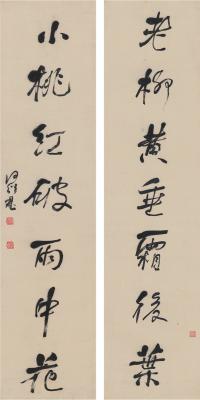 老柳黄垂霜後葉
小桃红破雨中花